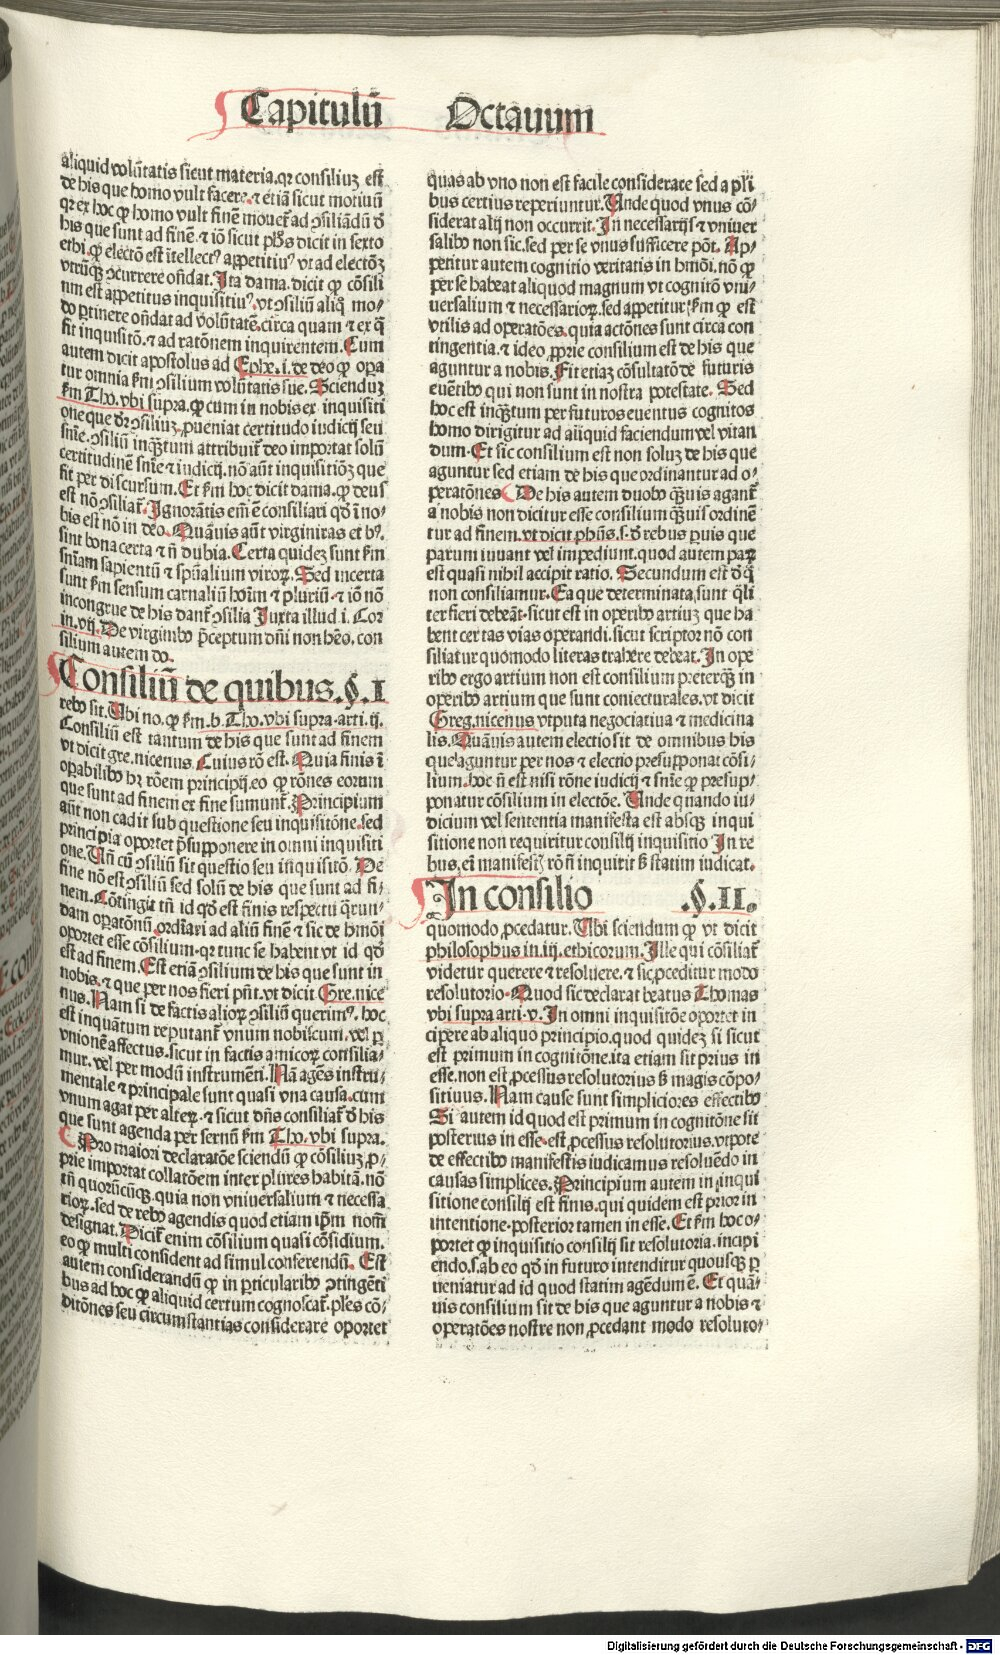 Capitulū Octauum
aliquid volūtatis sicut materia.qꝛ consiliuꝫ est
de his que homo vult facere.⁊ etiā sicut motiuū
qꝛ ex hoc ꝙ homo vult finē mouet̄ ad ꝯsiliādū d̄
his que sunt ad finē.⁊ iō sicut ph̄s dicit in sexto
ethi.ꝙ electō est ītellectꝰ appetitiuꝰ vt ad electōꝫ
vtrūqꝫ ꝯcurrere oñdat.Ita dama.dicit ꝙ cōsili
um est appetitus inquisitiuꝰ.vt ꝯsiliū aliqͦ mo/
do ꝑtinere oñdat ad volūtatē.circa quam ⁊ ex q̄
fit inquisitō.⁊ ad ratōnem inquirentem.Cum
autem dicit apostolus ad Ephe.i.de deo ꝙ opa
tur omnia ẜm ꝯsilium volūtatis sue.Scienduꝫ
ẜm Tho.vbi supra.ꝙ cum in nobis ex inquisiti
one que dr̄ ꝯsiliuꝫ.ꝓueniat certitudo iudicij seu
snīe.ꝯsiliū inqꝫtum attribuit̄ deo importat solū
certitudinē snīe ⁊ iudicij.nō aūt inquisitiōꝫ que
fit per discursum.Et ẜm hoc dicit dama.ꝙ deus
est nō ꝯsiliat̄.Ignorātis em̄ ē consiliari qd̄ i no/
bis est nō in deo.Quāuis aūt virginitas et hꝰ.
sint bona certa ⁊ ñ dubia.Certa quideꝫ sunt ẜm
snīam sapientū ⁊ spūalium viroꝝ.Sed incerta
sunt ẜm sensum carnaliū hoīm ⁊ pluriū.⁊ iō nō
incongrue de his dant̄ ꝯsilia Iuxta illud.i.Cor
in.vij.De virginibꝰ p̄ceptum dn̄i non hēo,con
silium autem do.
Consiliū de quibus.§.I
rebꝰ sit.Ubi no.ꝙ ẜm.b.Tho.vbi supra.arti.ij.
Consiliū est tantum de his que sunt ad finem
vt dicit gre.nicenus.Cuius rō est.Quia finis ī
opabilibꝰ hꝫ rōem principij.eo ꝙ rōnes eorum
que sunt ad finem ex fine sumunt̄.Principium
aūt non cadit sub questione seu inquisitōne.sed
principia oportet p̄supponere in omni inquisiti
one.Un̄ cū ꝯsiliū sit questio seu inquisitō.De
fine nō est ꝯsiliū sed solū de his que sunt ad fi/
nem.Cōtingit tn̄ id qd̄ est finis respectu q̄run/
dam opatōnū.ordīari ad aliū finē ⁊ sic de hmōi
oportet esse cōsilium.qꝛ tunc se habent vt id qd̄
est ad finem.Est etiā ꝯsilium de his que sunt in
nobis.⁊ que per nos fieri pn̄t.vt dicit Gre.nice
nus.Nam si de factis alioꝝ ꝯsiliū querimꝰ.hoc
est inquātum reputant̄ vnum nobiscum.vel ꝑ
vnionē affectus.sicut in factis amicoꝝ consilia/
mur.vel per modū instrumēti.Nā agēs instru/
mentale ⁊ principale sunt quasi vna causa.cum
vnum agat per alteꝝ.⁊ sicut dn̄s consiliat̄ d̄ his
que sunt agenda per seruū ẜm Tho.vbi supra.
Pro maiori declaratōe sciendū ꝙ cōsiliuꝫ.ꝓ/
prie importat collatōem inter plures habitā.nō
tn̄ quorūcūqꝫ.quia non vniuersalium ⁊ necessa
rioꝝ.sed de rebꝰ agendis quod etiam ip̄m nomē
designat.Dicit̄ enim cōsilium quasi cōsidium.
eo ꝙ multi consident ad simul conferendū.Est
autem considerandū ꝙ in ꝑticularibꝰ ꝯtingēti
bus ad hoc ꝙ aliquid certum cognoscat̄.ples cō/
ditōnes seu circumstantias considerare oportet
quas ab vno non est facile considerare sed a pli
bus certius reperiuntur.Unde quod vnus cō/
siderat alij non occurrit.In necessarijs ⁊ vniuer
salibꝰ non sic.sed per se vnus sufficere pōt.Ap/
petitur autem cognitio veritatis in hmōi.nō ꝙ
per se habeat aliquod magnum vt cognitō vni/
uersalium ⁊ necessarioꝝ.sed appetitur ẜm ꝙ est
vtilis ad operatōes.quia actōnes sunt circa con
tingentia.⁊ ideo ꝓprie consilium est de his que
aguntur a nobis.Fit etiaꝫ cōsultatō de futuris
euētibꝰ qui non sunt in nostra potestate.Sed
hoc est inqꝫtum per futuros euentus cognitos
homo dirigitur ad aliquid faciendum vel vitan
dum.Et sic consilium est non soluꝫ de his que
aguntur sed etiam de his que ordinantur ad o/
peratōnes De his autem duobꝰ qꝫuis agant̄
a nobis non dicitur esse consilium qꝫuis ordinē
tur ad finem.vt dicit phūs.s.d̄ rebus ꝑuis que
parum iuuant vel impediunt.quod autem paꝝ
est quasi nihil accipit ratio.Secundum est d̄ qͥ
non consiliamur.Ea que determinata,sunt qͣli
ter fieri debeāt.sicut est in operibꝰ artiuꝫ que ha
bent certas vias operandi.sicut scriptor nō con
siliatur quomodo literas trahere debeat.In ope
ribꝰ ergo artium non est consilium p̄terqꝫ in
operibꝰ artium que sunt coniecturales.vt dicit
Greg.nicenus vtputa negociatiua ⁊ medicina
lis.Quāuis autem electio sit de omnibus his
que aguntur per nos ⁊ electio presupponat cōsi/
lium.hoc ñ est nisi rōne iudicij ⁊ snīe ꝙ presup/
ponatur cōsilium in electōe.Unde quando iu/
dicium vel sententia manifesta est absqꝫ inqui
sitione non requiritur consilij inquisitio In re
bus.em̄ manifestꝭ rō ñ inquirit s̄ statim iudicat.
In consilio §.II.
quomodo ꝓcedatur.Ubi sciendum ꝙ vt dicit
philosophus in.iij.ethicorum.Ille qui cōsiliat̄
videtur querere ⁊ resoluere.⁊ sic ꝓceditur modo
resolutorio.Quod sic declarat beatus Thomas
vbi supra arti.v.In omni inquisitōe oportet in
cipere ab aliquo principio.quod quidez si sicut
est primum in cognitōne.ita etiam sit prius in
esse.non est ꝓcessus resolutorius s̄ magis cōpo/
sitiuus.Nam cause sunt simpliciores effectibꝰ
Si autem id quod est primum in cognitōne sit
posterius in esse.est ꝓcessus resolutorius.vtpote
de effectibꝰ manifestis iudicamus resoluēdo in
causas simplices.Principium autem in inqui
sitione consilij est finis.qui quidem est prior in
intentione.posterior tamen in esse.Et ẜm hoc o/
portet ꝙ inquisitio consilij sit resolutoria.incipi
endo.s.ab eo qd̄ in futuro intenditur quousqꝫ ꝑ
ueniatur ad id quod statim agēdum ē.Et quā/
uis consilium sit de his que aguntur a nobis ⁊
operatōes nostre non ꝓcedant modo resoluto/
Digitalisierung gefördert durch die Deutsche Forschungsgemeinschaft - DFG